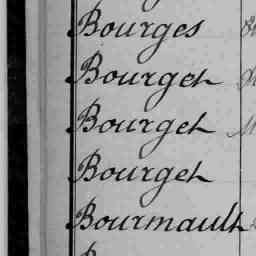 Bourges
Bourget
Bourget
Bourget
Bourmault